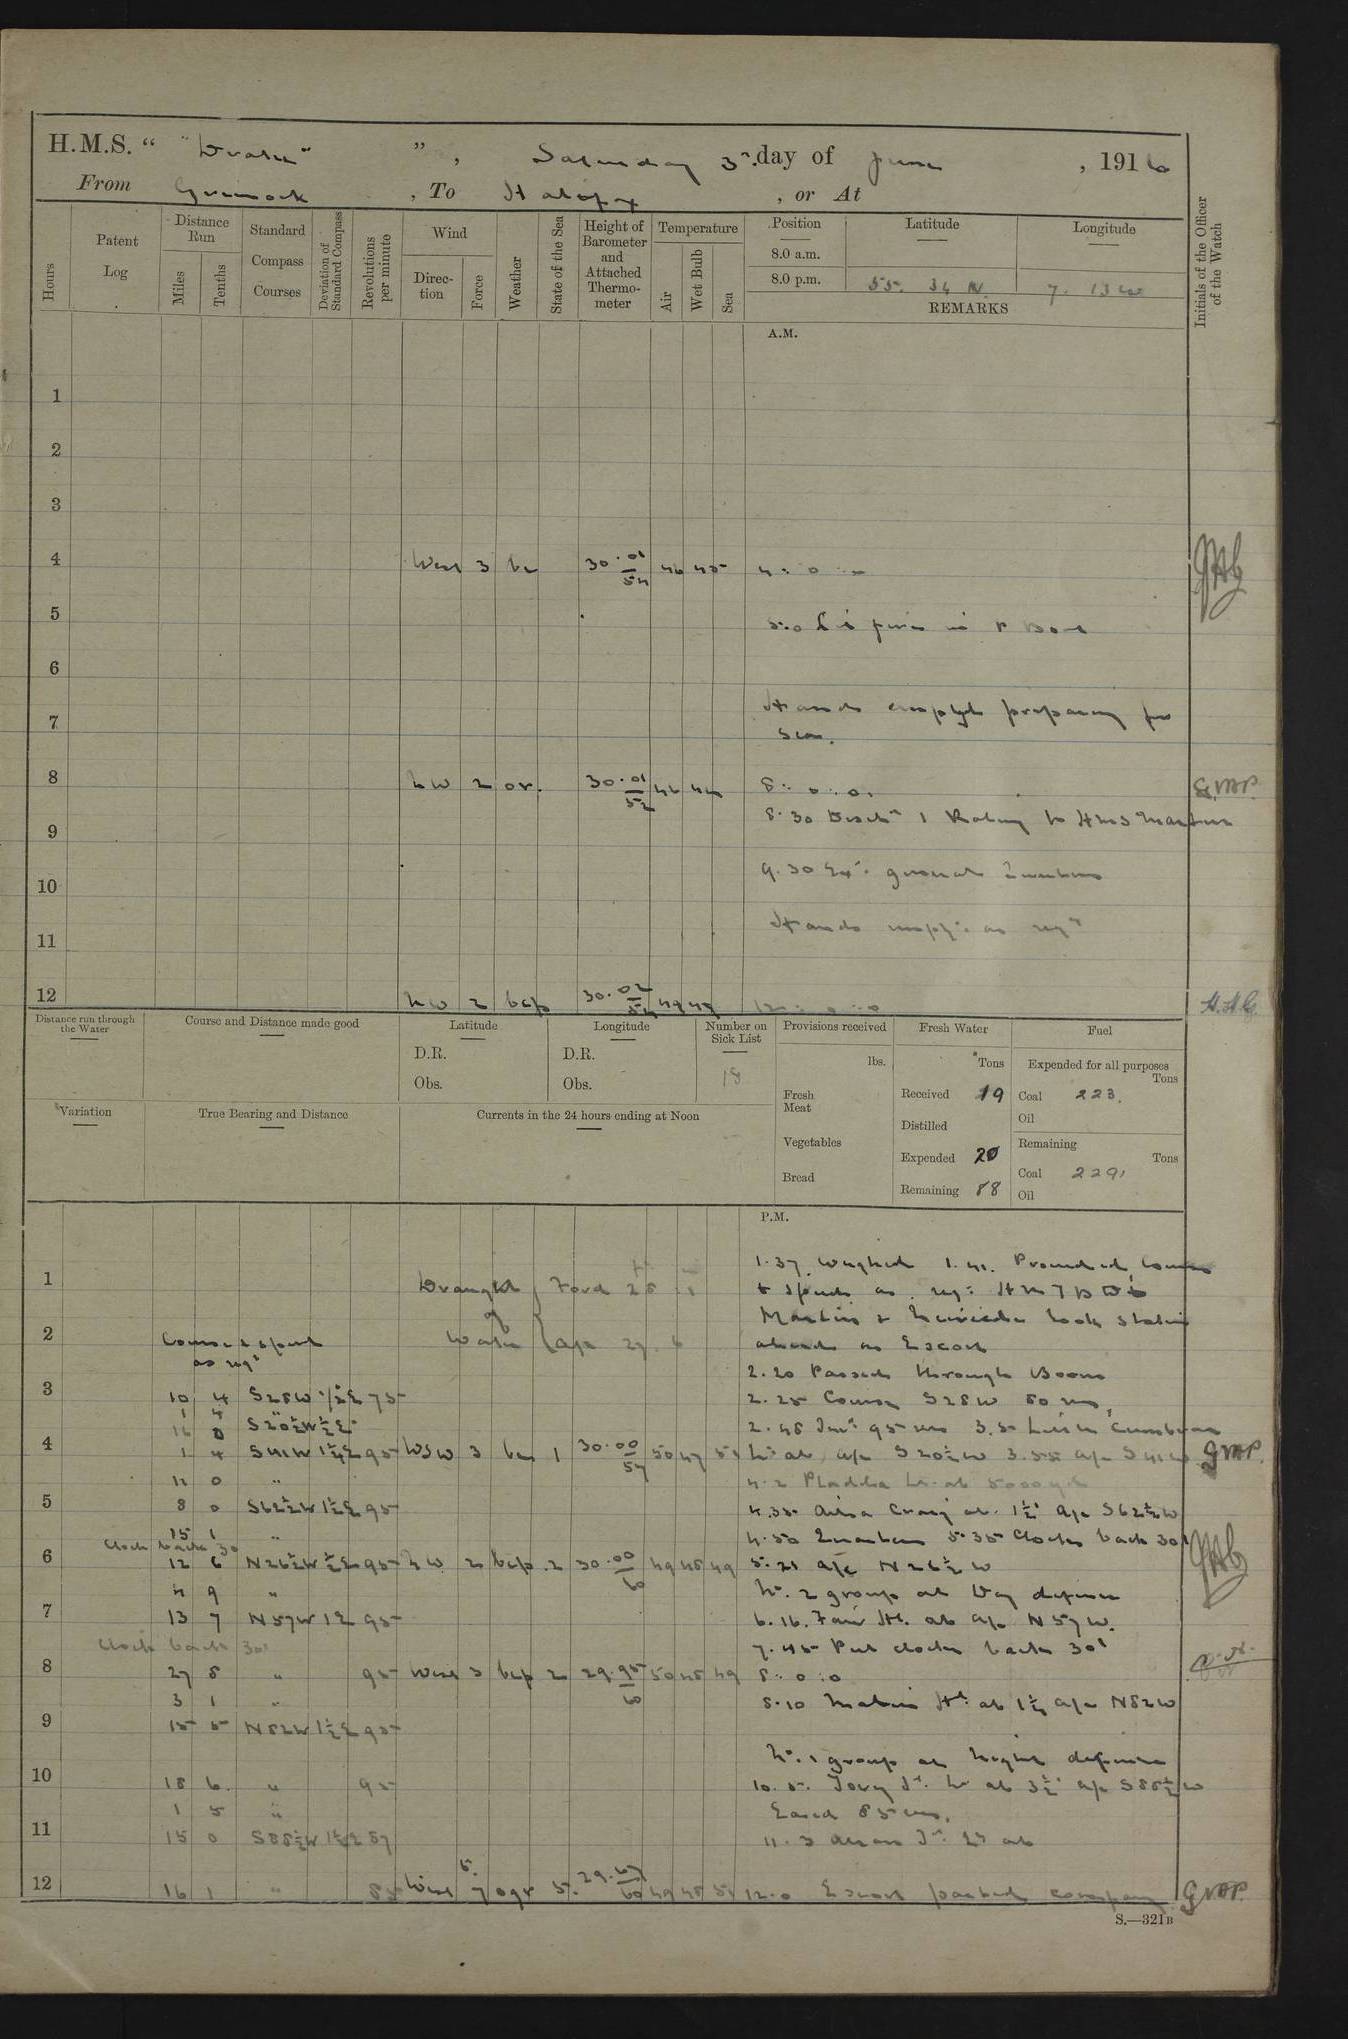 H.M.S. " "Drake" ", Saturday 3rd. day of June, 1916
From Greenock, To Halifax, or At
Hours
Patent Log
Distance Run
Miles
Tenths
Standard Compass Courses
Deviation of Standard Compass
Revolutions per minute
Wind
Direction
Force
Weather
State of the Sea
Height of Barometer and Attached Thermometer
Temperature
Air
Wet Bulb
Sea
Position
8.0 a.m.
8.0 p.m.
Latitude
55. 34 N
Longitude
7. 13 W
REMARKS
Initials of the Officer of the Watch
A.M.
1
2
3
4 West 3 bc 30.01 54 46 45 4: 0
5 5.0 fires in P Boat
6
7 Hands employed preparing for
Sea.
8 NW 2 or. 30.01 52 46 44 8: 0: 0. GMP.
8.30 Disch 1 Rating to HMS
9
9.30 general Quarters
10
Hands empl: as reqd
11
12 NW 2 bcp 30.02 54 49 47 12: 0: 0
Distance run through the Water
Course and Distance made good
Latitude
D.R.
Obs.
Longitude
D.R.
Obs.
Number on Sick List
18
Provisions received
lbs.
Fresh Meat
Vegetables
Bread
Fresh Water
Tons
Received 19
Distilled
Expended 20
Remaining 88
Fuel
Expended for all purposes
Tons
Coal 223.
Oil
Remaining
Tons
Coal 2291
Oil
Variation
True Bearing and Distance
Currents in the 24 hours ending at Noon
P.M.
1.37. Weighed 1.41. Proceeded, Course
1 Draught of Water Ford 28 Aft 27. 6 & speed as req: H M T B D's
Martin & took station
2 Course & speed as reqd ahead as Escort
2.20 Passed through Boom
3 10 4 S28W ½E 75 2.25 Course S28W 80 revs,
1 4 "
16 0 S20½W ½E 2.48 Incd 95 revs 3.5 Little Cumbrae
4 1 4 S41W 1¼E 95 WSW 3 bc 1 30.00 57 50 47 51 Lt ab, a/c S20½W 3.55 a/c S41W GMP.
12 0 " 4.2 Pladda Lt. ab 5000 yds
5 8 0 S62½W 1½E 95 4.35 Ailsa Craig ab. 1½' a/c S62½W
15 1 " 4.50 Quarters 5.35 Clocks back 30'
Clock back 30
6 12 6 N26½W ½E 95 NW. 2 bcp. 2 30.00 60 49 48 49 5.21 a/c N26½W
4 9 " No. 2 group at Day defence
7 13 7 N57W 1E 95 6.16. Fair Hd. ab a/c N57W.
Clock back 30' 7.45 Put clocks back 30'
8 27 8 " 95 West 3 bcp 2 29.95 60 50 48 49 8: 0: 0
3 1 " 8.10 Malin Hd. ab 1¼ a/c N82W
9 15 5 N82W 1½E 95
No. 1 group at Night defence
10 18 6. " 95 10.5. Tory Id. Lt ab 3½' a/c S88½W
1 5 " Eased 85 revs.
11 15 0 S88½W 1½E 87 11.3 Id. Lt ab
12 16 1 " 85 West 6.7 ogr 5. 29.67 60 49 48 51 12.0 Escort parted company GMP.
S.—321B